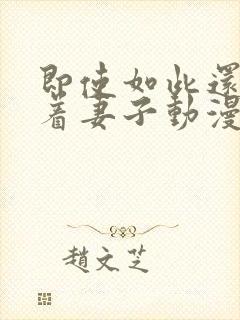 即使如此還
着妻子動漫
趙文芝